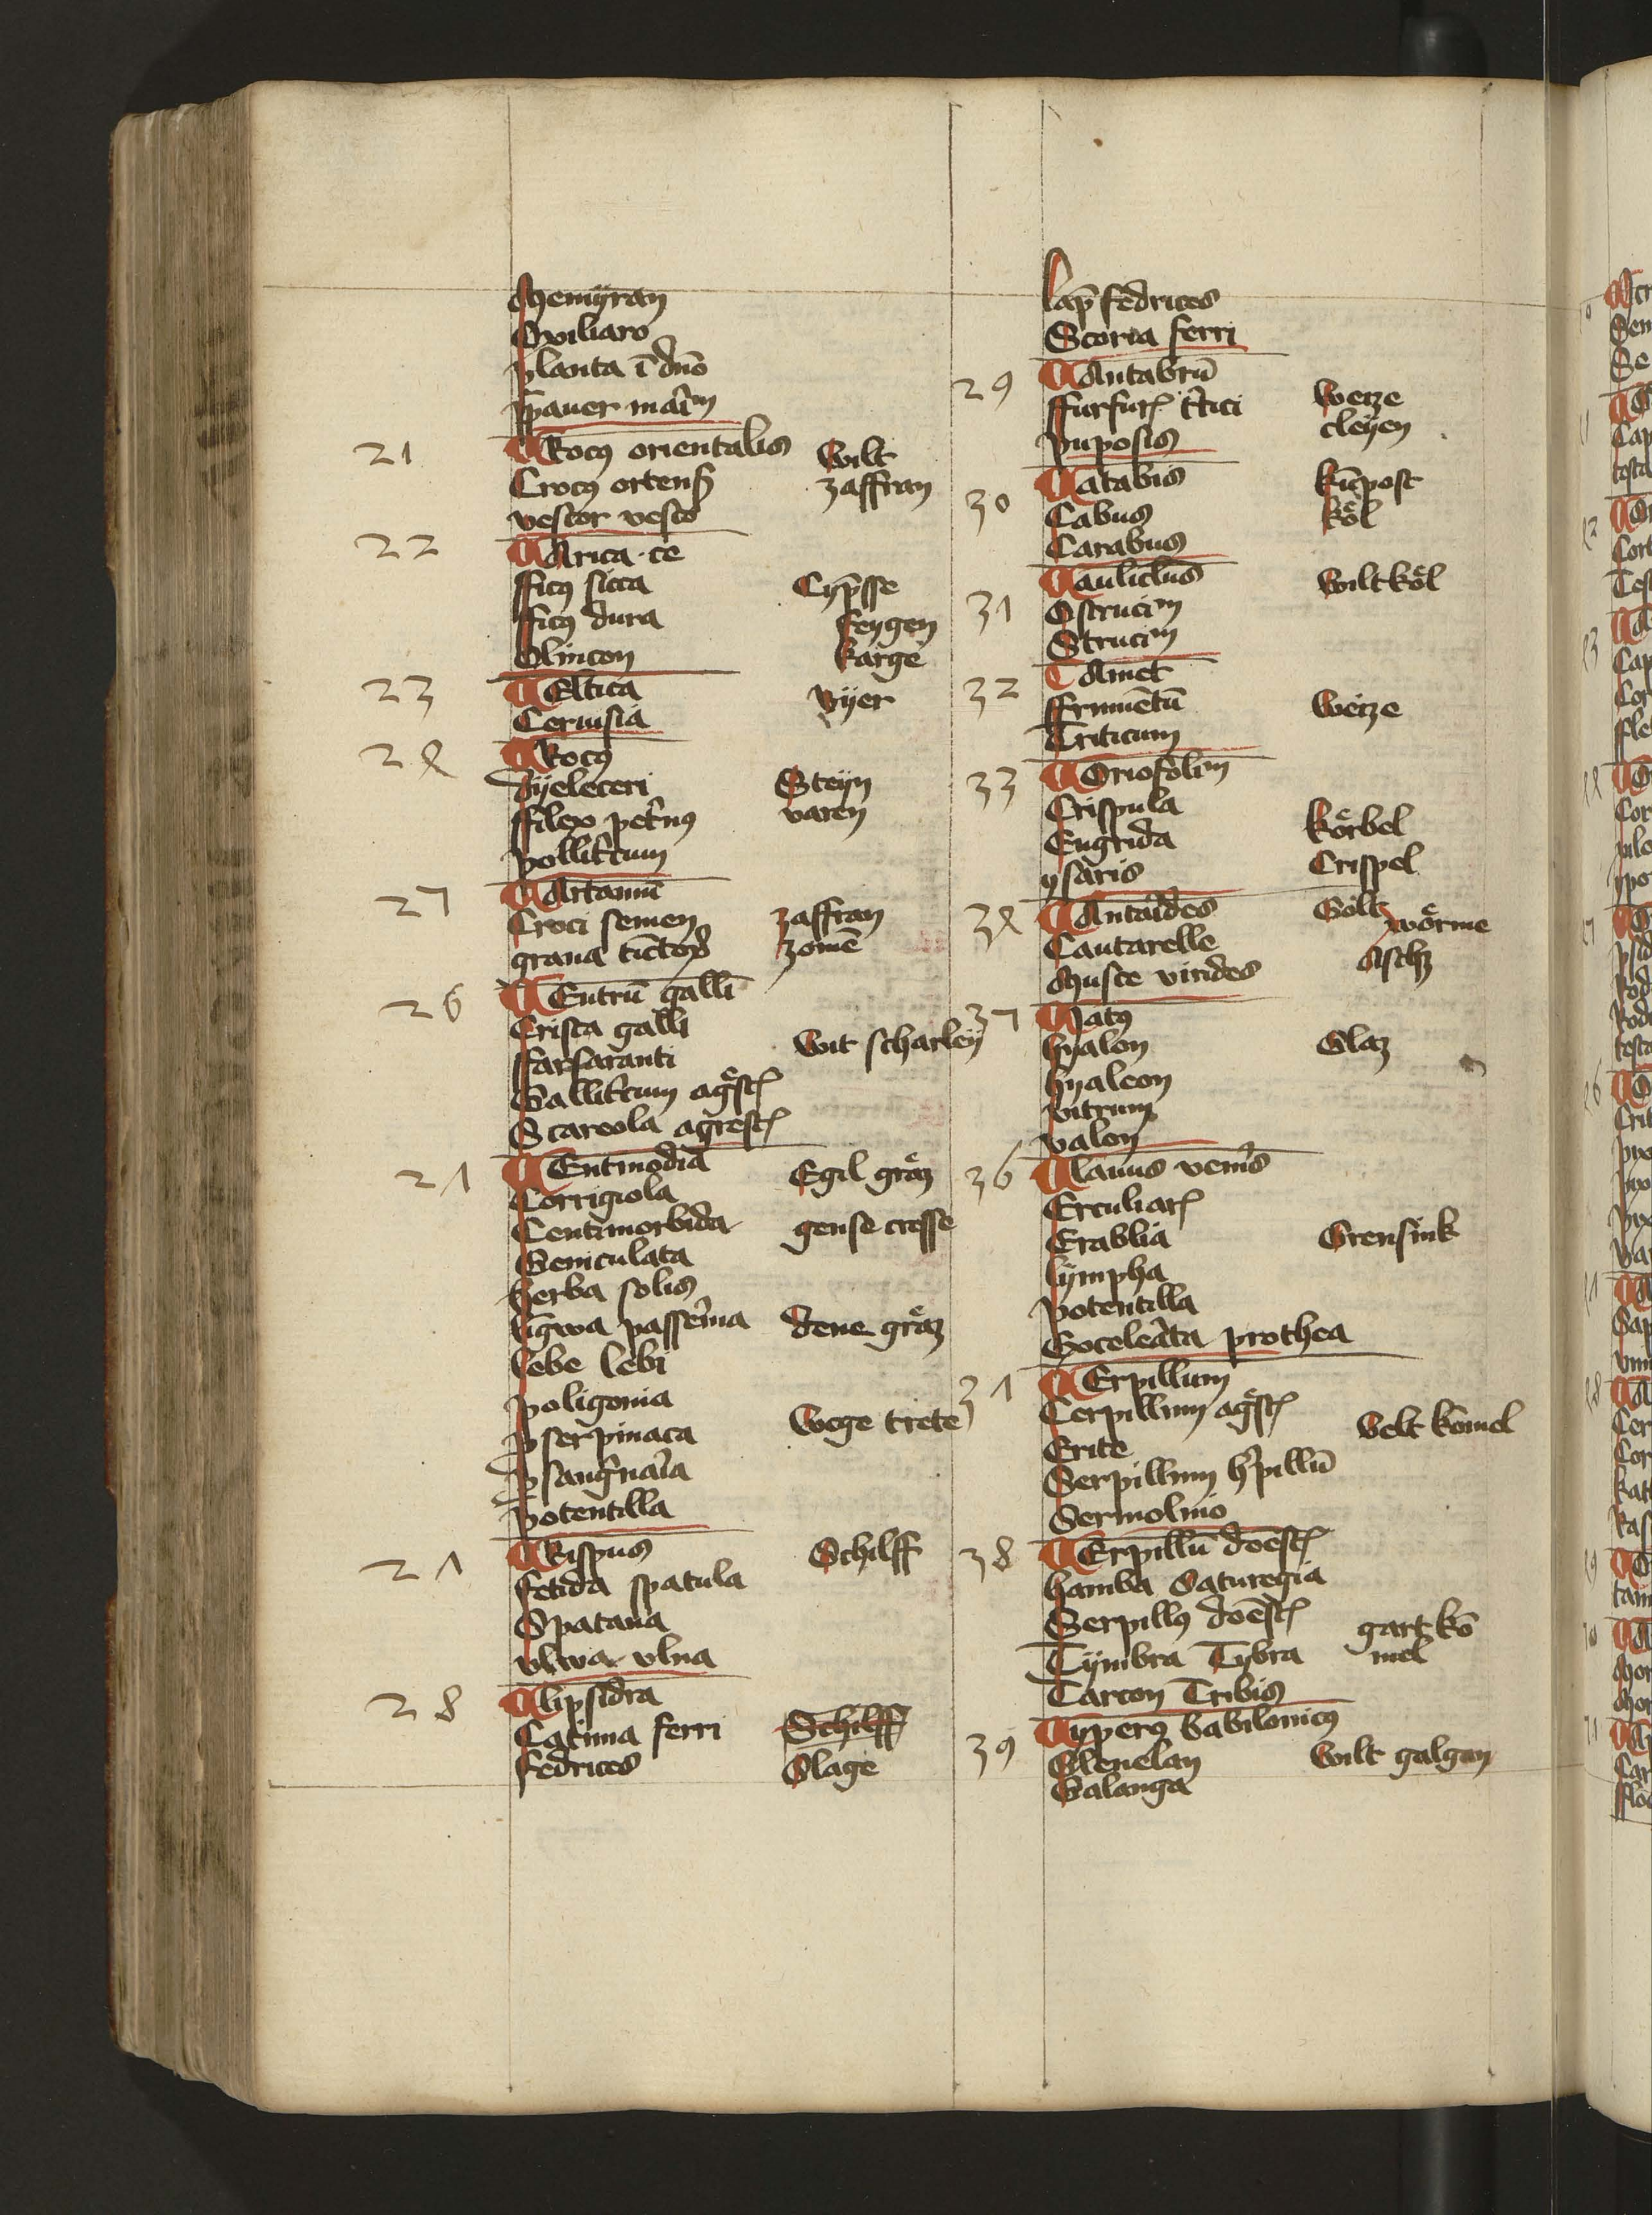 Memyran
Oxiliaro
planta ī dn̄o
papauer mai͂m
21 Crocꝰ orientalis Wilt
Crocꝰ ortenß zaffran
vestor vesco
22 Carica ce
fficꝰ sicca Cyp̄sse
fficꝰ dura feygen
Olincon karge
23 Celtica byer
Ceruisia
24 Crocꝰ
dyeleceri Steyn
ffilex pet͛nꝰ varen
pollit͛cum
25 Cartamū
Croci semen zaffran
grana tīctoꝝ zomē
26 Centrū galli
Crista galli
ffarfaranti Wit scharley
Gallit͛cum agͤst͛
Scareola agrest͛
27 Centmodia Egil graͤz
Corrigiola
Centimorbida gense cresse
Geniculata
herba solis
līgwa passe͛ina dene graͤz
lebe lebi
poligonia
pserpinaca Wege trete
psang͛nai͛a
potentilla
27 Crispus Schilff
fetida spatula
Spatana
vlwa vlua
28 Clipsidra
Catima ferri Schilff
fedrices Slage
lap̄ fedrices
Scoria ferri
29 Cantabrū
ffurfur͛ t͛tici Weize
puposis cleyen
30 Catabis kūpost
Cabus koͤl
Carabus
31 Cauliclus Wiltkoͤl
Ostrucim
Strucim
32 Camet
ffrumētū Weize
Triticum
33 Coriofolim
Crispula koͤrbel
Eugrida
ysaris Crispel
34 Cantaides Goltz woͤrme
Cantarelle
Musce virides Aschz
35 Ciatꝰ
hyalon Glaz
hyaleon
vitrum
valon
36 Clauus vene͛is
Erculiar͛
Erablia Grensink
lympha
potentilla
Soceleata prothea
37 Cerpillum
Cerpillum agͤst͛ Velt komel
Erite
Serpillum h͛pillū
Sermolino
38 Cerpillū doēst͛
hamba Saturegia
Serpillꝰ doēst͛ gart ko
Tymbra Tybra mel
Tarcon Tribis
39 Cyperꝰ babilonicꝰ
Elenelan Wilt galgan
Galanga